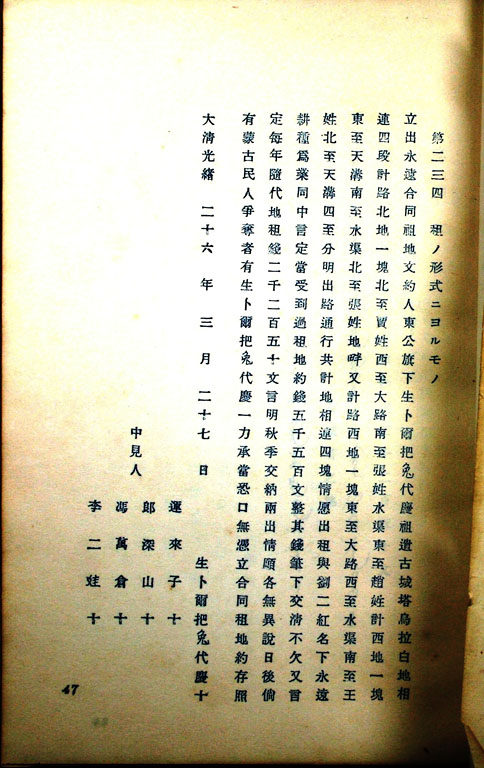 第二三四　租ノ形式ニヨルモノ
立出永遠合同祖地文約人東公旗下生卜爾把兔代慶祖遺古城塔烏拉白地相
連四段計路北地一塊北至賈姓西至大路南至張姓水渠東至趙姓計西地一塊
東至天溝南至水渠北至張姓地畔又計路西地一塊東至大路西至水渠南至王
姓北至天溝四至分明出路通行共計地相連四塊情愿出租與劉二紅名下永遠
耕種爲業同中言定當受到過租地約錢五千五百文整其錢筆下交清不欠又言
定每年隨代地租錢二千二百五十文言明秋季交納兩出情願各無異說日後倘
有蒙古民人爭奪者有生卜爾把兔代慶一力承當恐口無憑立合同租地約存照
大清光緒　二十六年三月二十七日
生卜爾把兔代慶十
中見人
運來子十
郎深山十
馮萬倉十
李二娃十
47